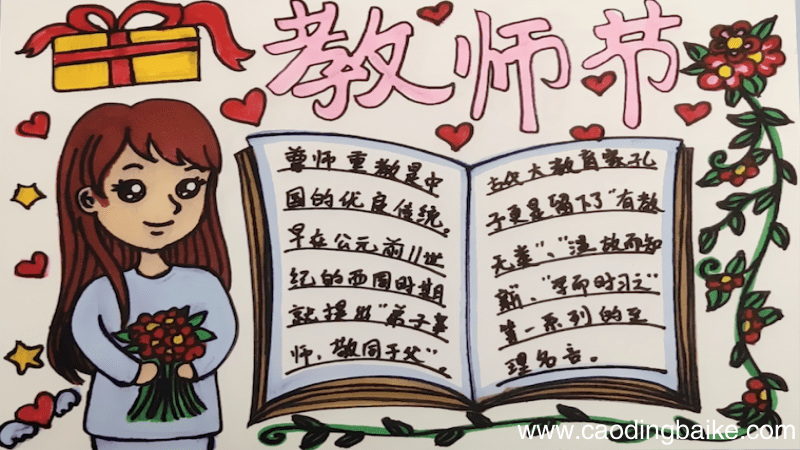 教师节
尊师重教是中
国的优良传统。
早在公元前11世
纪的西周时期
就提出"弟子事
师,敬同于父"。
古代大教育家孔
子更是留下了"有教
无类"、"温故而知
新"、"学而时习之"
等一系列的至
理名言。
www.caodingbaike.com